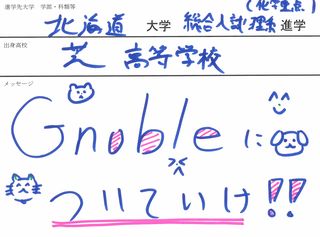 進学先大学 学部・科類等
(化学重点)
北海道 大学 総合入試理系 進学
出身高校
芝 高等学校
メッセージ
Gnobleに
ついていけ!!